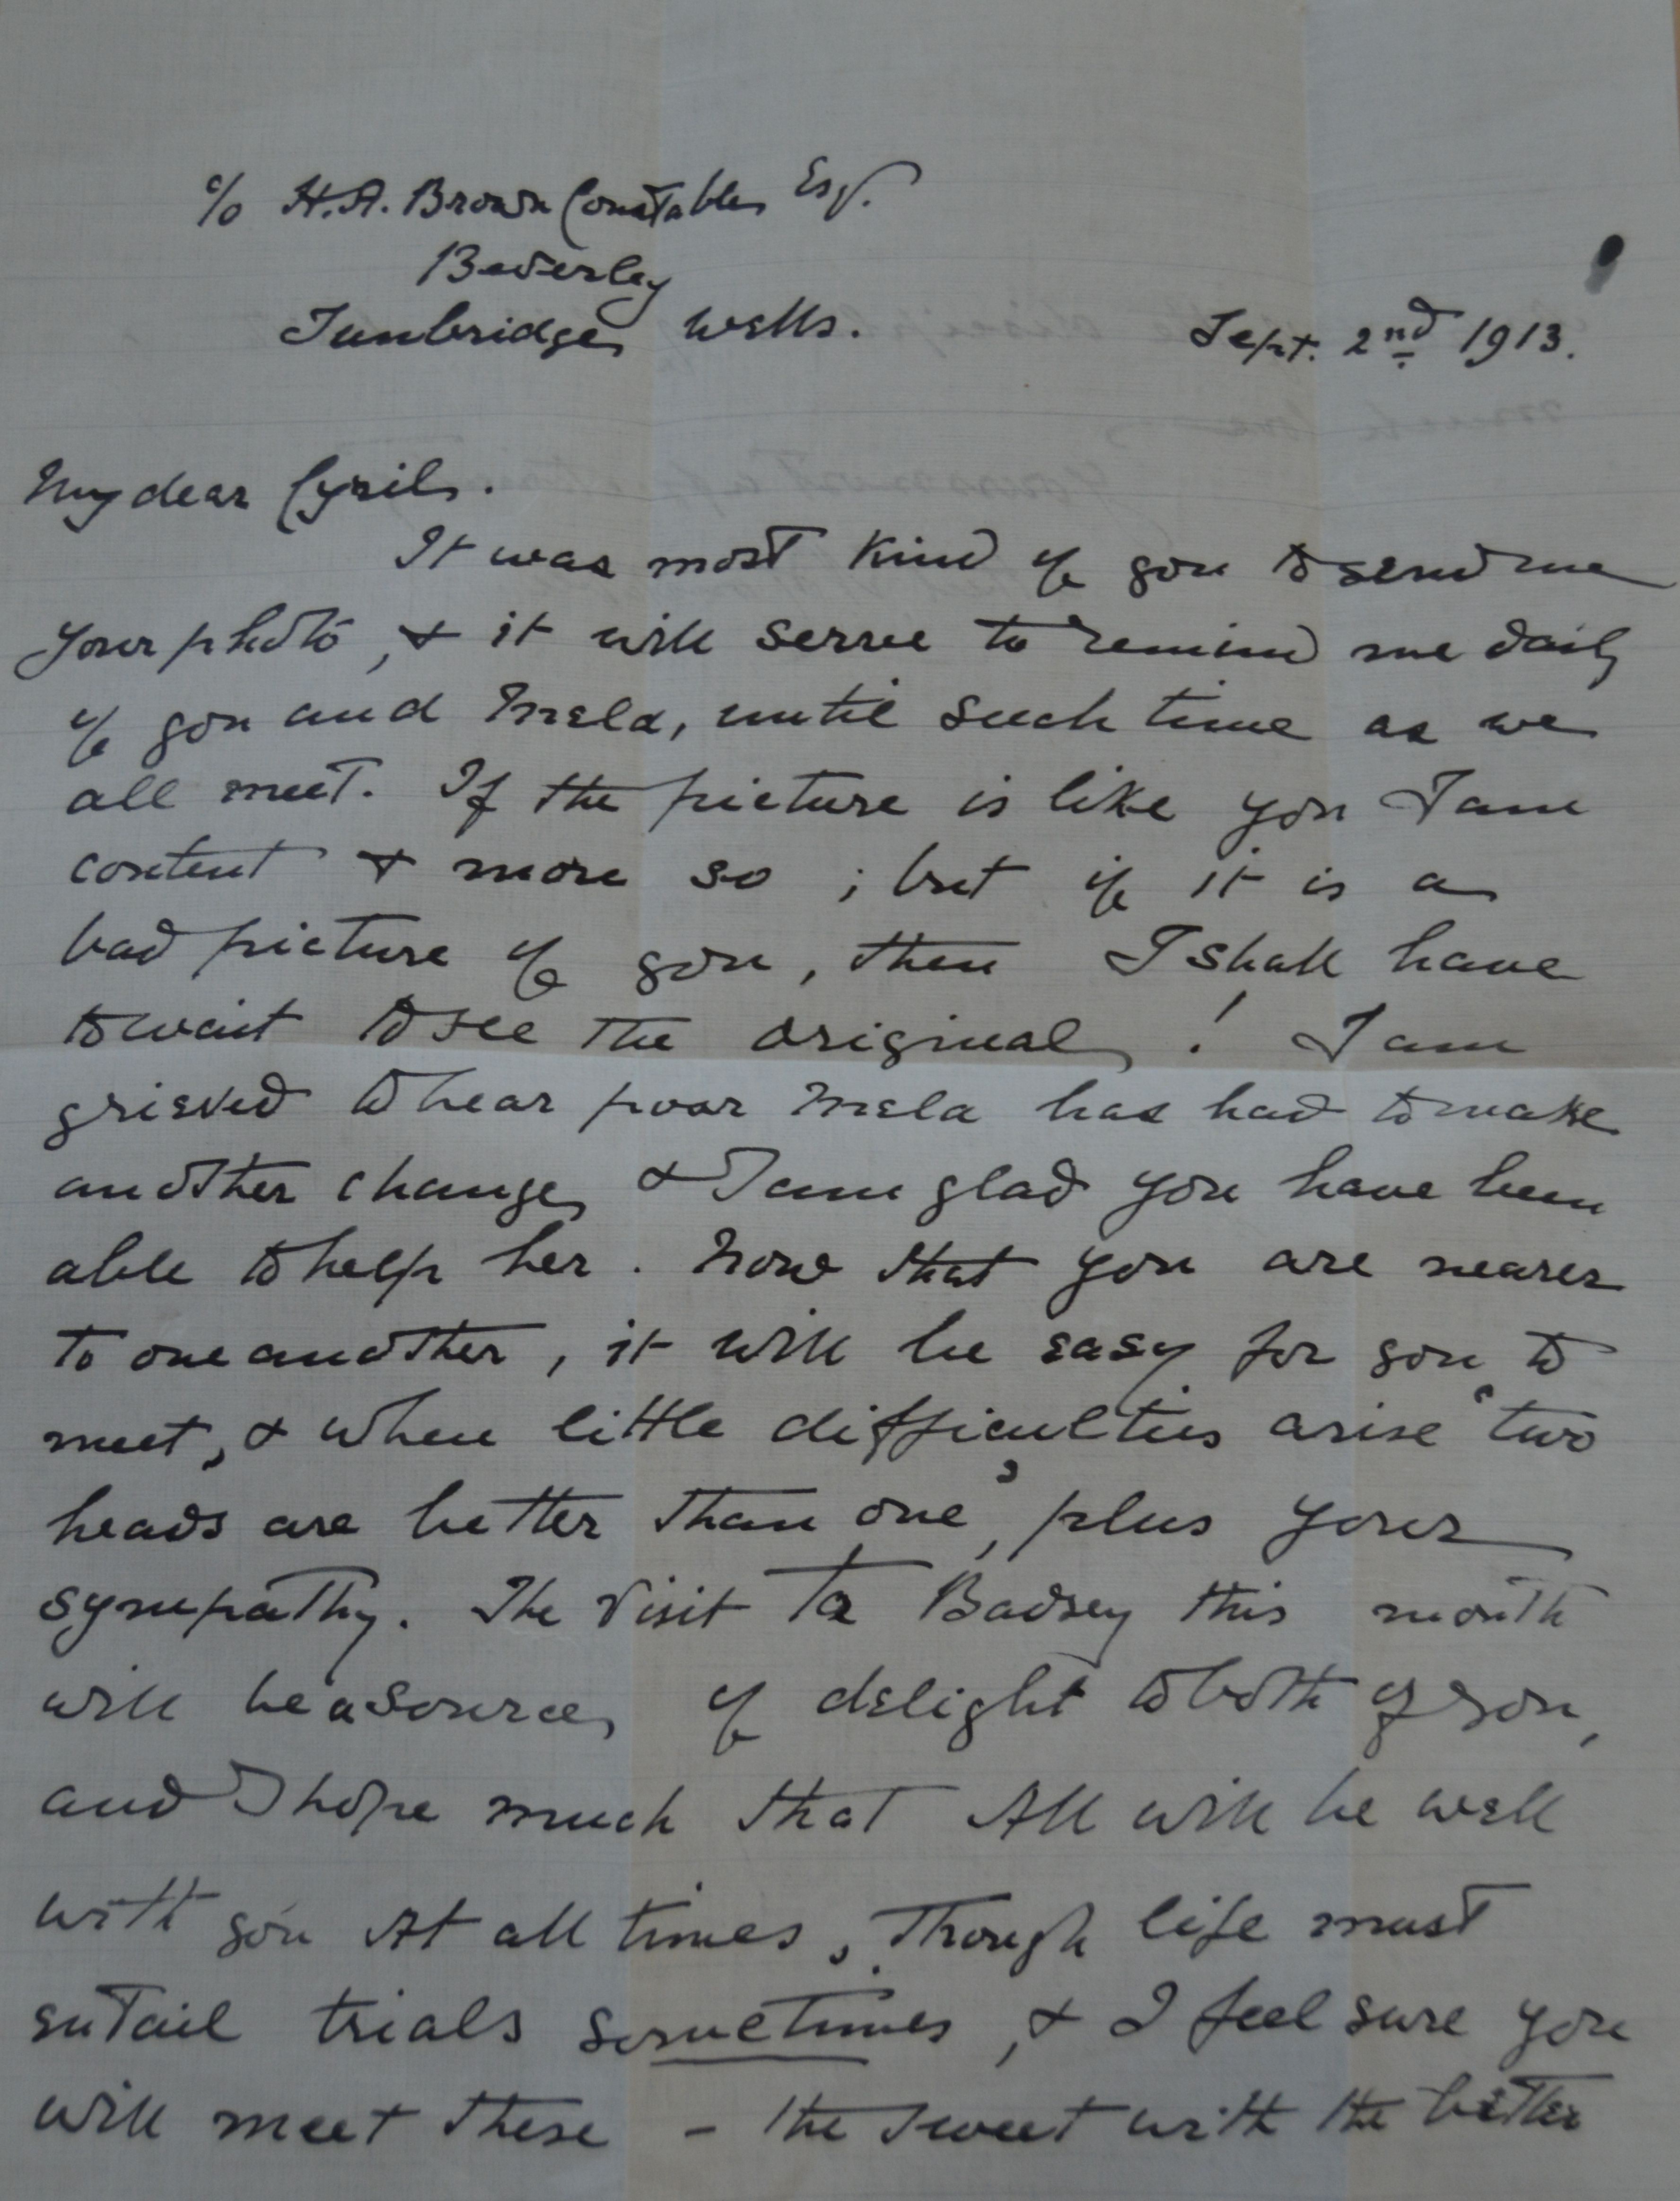 c/o H.A. Brown Constable Esq.
Beverley
Tunbridge Wells.
Sept. 2nd 1913.
My dear Cyril.
It was most kind of you to send me
your photo, & it will serve to remind me daily
of you and Mela, until such time as we
all meet. If the picture is like you I am
content & more so ; but if it is a
bad picture of you, then I shall have
to wait to see the original ! I am
grieved to hear poor Mela has had to make
another change & I am glad you have been
able to help her. Now that you are nearer
to one another, it will be easy for you to
meet, & when little difficulties arise "two
heads are better than one", plus your
sympathy. The visit to Badsey this month
will be a source of delight to both of you,
and I hope much that All will be well
with you At all times, though life must
entail trials sometimes, & I feel sure you
will meet these - the sweet with the bitter